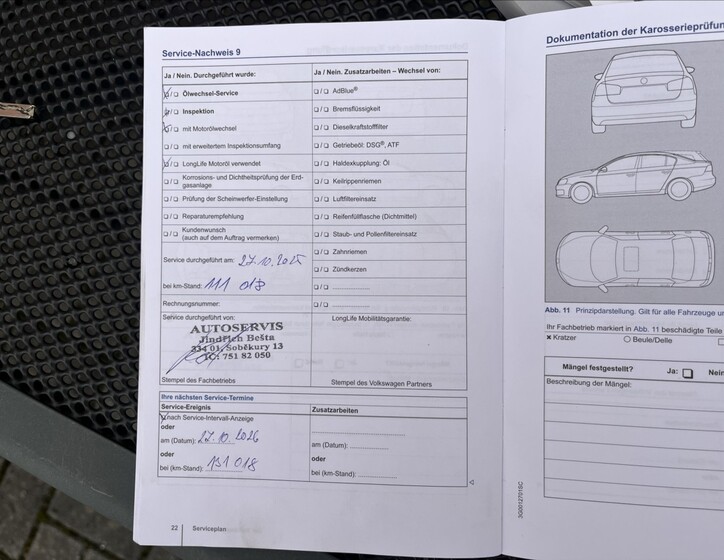 Service-Nachweis 9
Ja / Nein. Durchgeführt wurde:
☒/❑ Ölwechsel-Service
☒/❑ Inspektion
☒/❑ mit Motorölwechsel
❑/❑ mit erweitertem Inspektionsumfang
☒/❑ LongLife Motoröl verwendet
❑/❑ Korrosions- und Dichtheitsprüfung der Erd-
gasanlage
❑/❑ Prüfung der Scheinwerfer-Einstellung
❑/❑ Reparaturempfehlung
❑/❑ Kundenwunsch
(auch auf dem Auftrag vermerken)
Service durchgeführt am: 27.10.2025
bei km-Stand: 111 018
Rechnungsnummer:
Service durchgeführt von:
AUTOSERVIS
Jindřich Bešta
334 01, Soběkury 13
IČ: 751 82 050
Stempel des Fachbetriebs
Ja / Nein. Zusatzarbeiten – Wechsel von:
❑/❑ AdBlue®
❑/❑ Bremsflüssigkeit
❑/❑ Dieselkraftstofffilter
❑/❑ Getriebeöl: DSG®, ATF
❑/❑ Haldexkupplung: Öl
❑/❑ Keilrippenriemen
❑/❑ Luftfiltereinsatz
❑/❑ Reifenfüllflasche (Dichtmittel)
❑/❑ Staub- und Pollenfiltereinsatz
❑/❑ Zahnriemen
❑/❑ Zündkerzen
❑/❑
❑/❑
LongLife Mobilitätsgarantie:
Stempel des Volkswagen Partners
Ihre nächsten Service-Termine
Service-Ereignis
☒ nach Service-Intervall-Anzeige
oder
am (Datum): 27.10.2026
oder
bei (km-Stand): 131 018
Zusatzarbeiten
am (Datum):
oder
bei (km-Stand):
22 Serviceplan
Dokumentation der Karosserieprüfun
Abb. 11 Prinzipdarstellung. Gilt für alle Fahrzeuge un
Ihr Fachbetrieb markiert in Abb. 11 beschädigte Teile
× Kratzer ○ Beule/Delle
Mängel festgestellt? Ja: ❑ Nein
Beschreibung der Mängel:
3G0012701SC